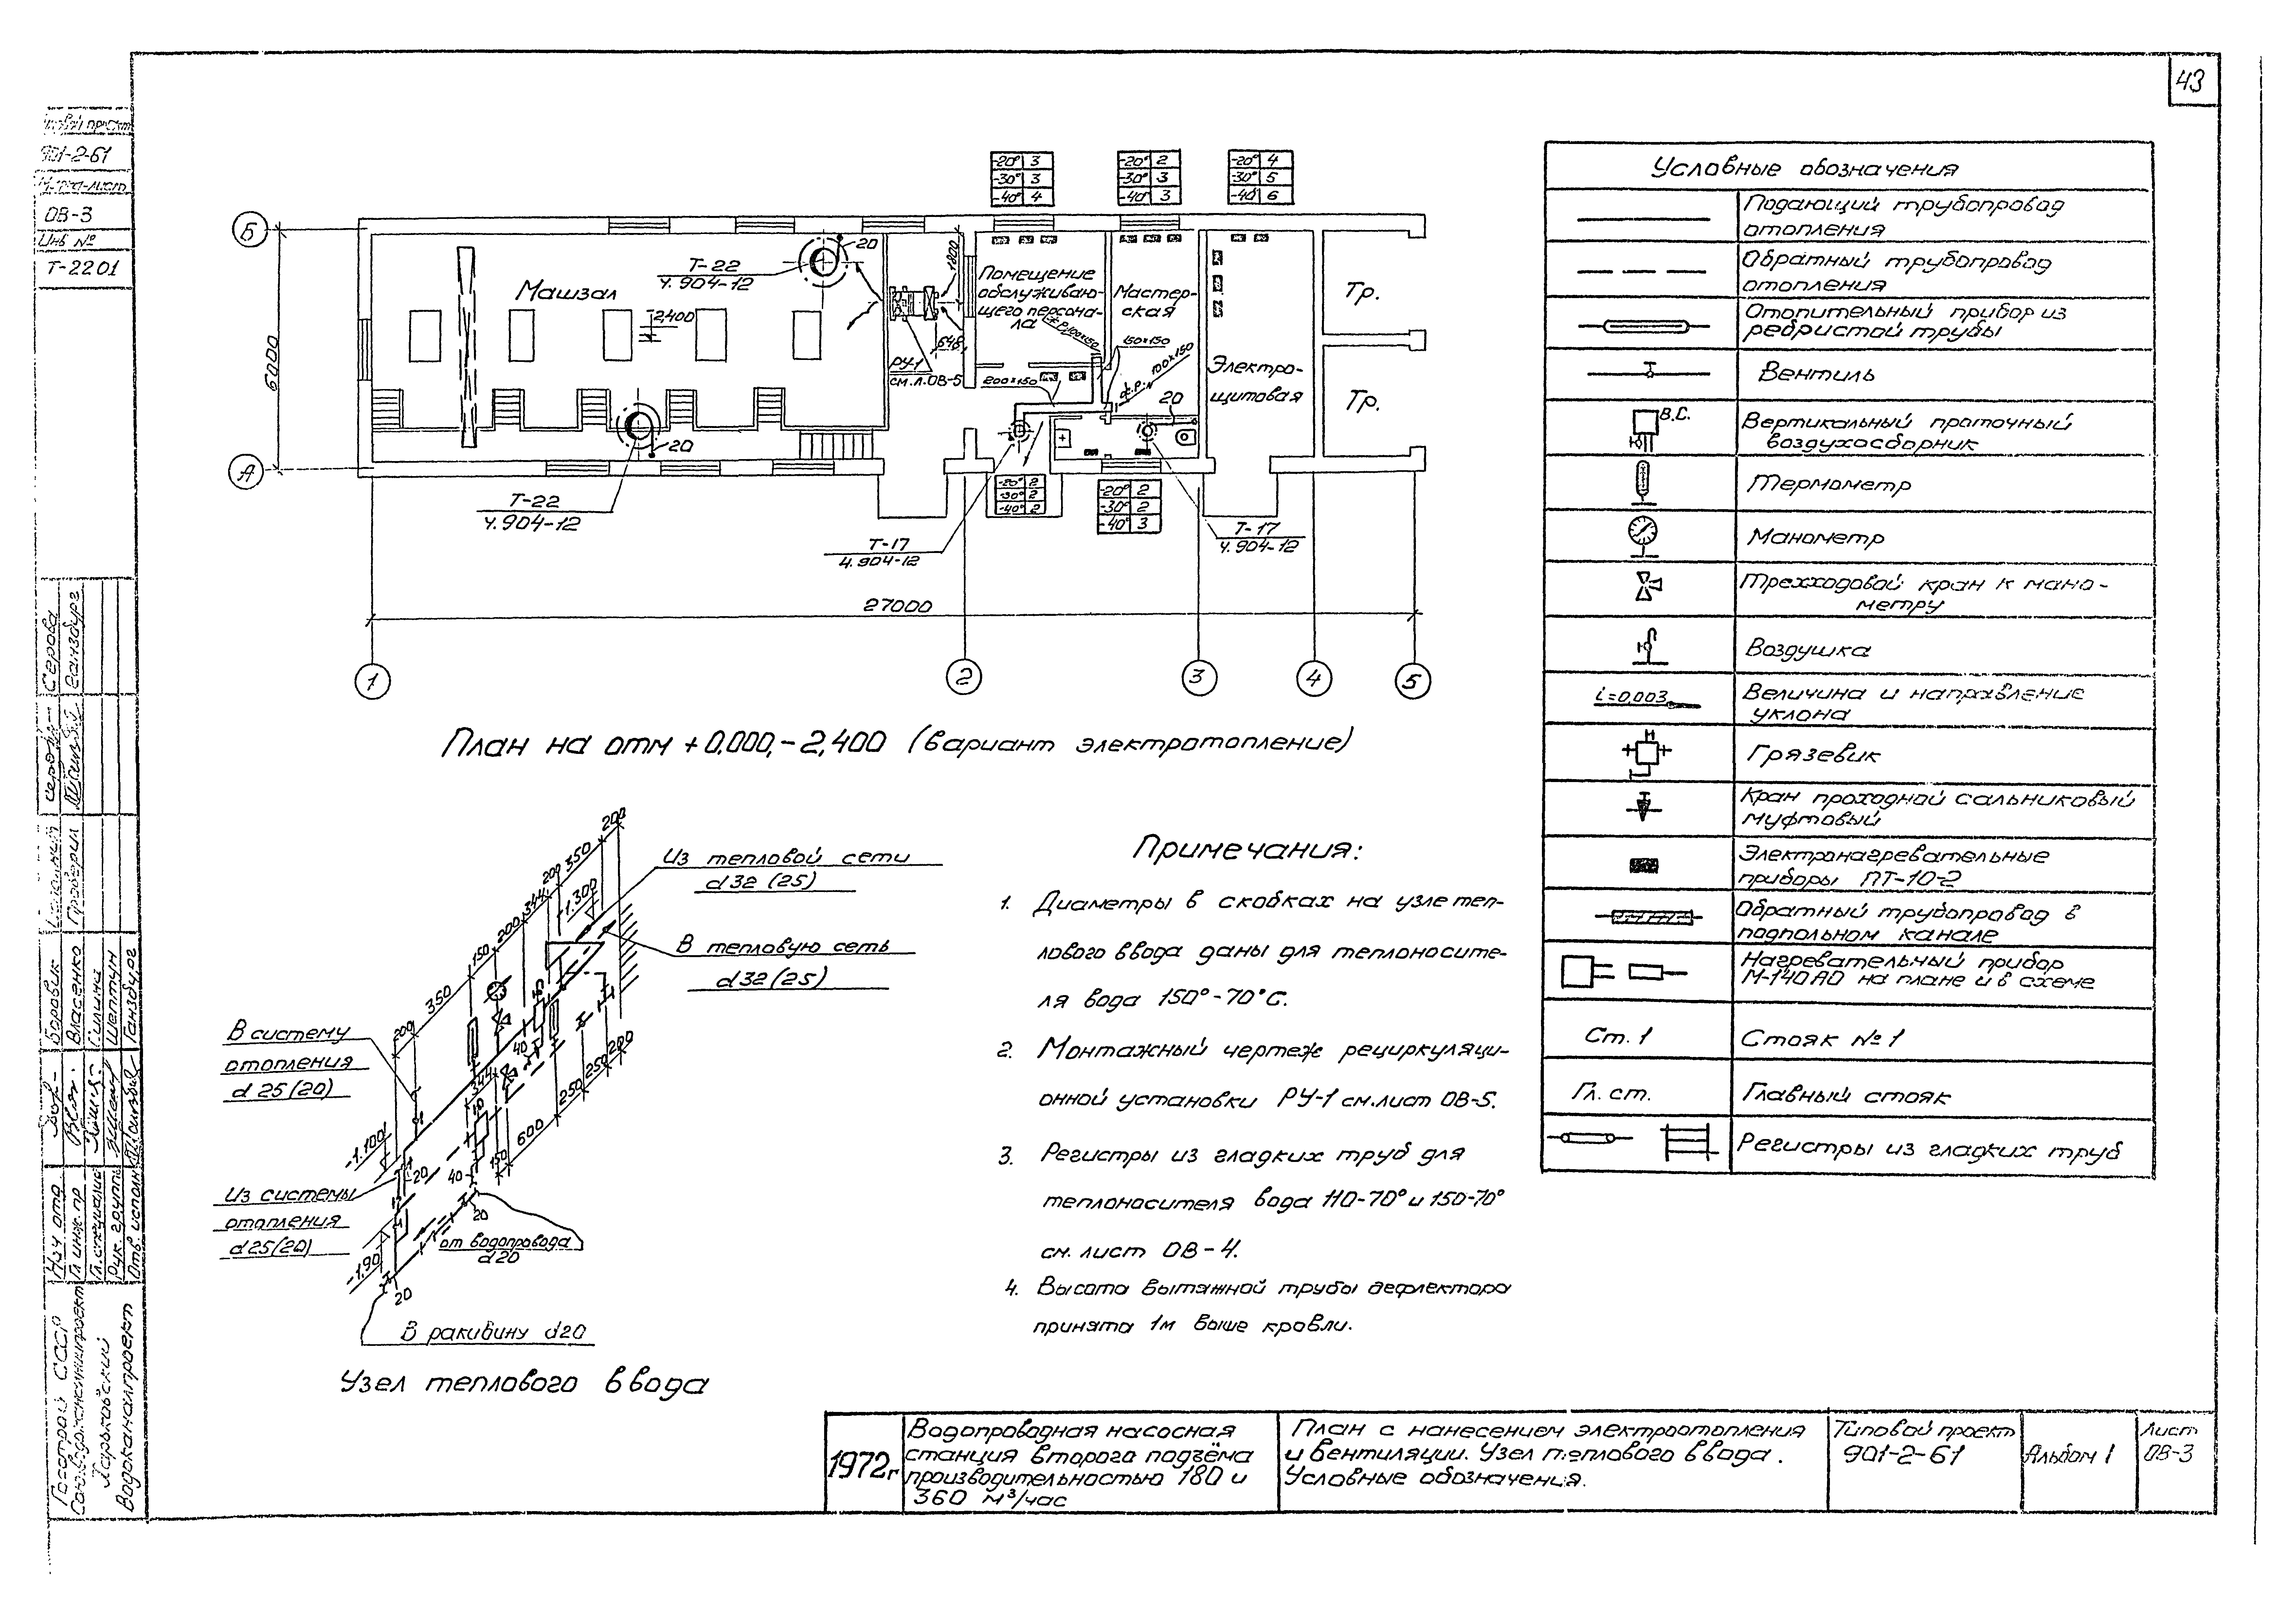 43
901-2-61
ОВ-3
Инв №
Т-2201
-20° 3
-30° 3
-40° 4
-20° 2
-30° 3
-40° 3
-20° 4
-30° 5
-40 6
Б
А
6000
Машзал
Т-22
ч.904-12
20
2,400
1200
РУ-1
см.л.ОВ-5
648
Помещение
обслуживаю-
щего персона-
ла
Мастер-
ская
150×150
200×150
100×150
20
Электро-
щитовая
Тр.
Тр.
20
Т-22
ч.904-12
-20° 2
-30° 2
-40° 2
-20° 2
-30° 2
-40° 3
Т-17
ч.904-12
Т-17
ч.904-12
27000
1
2
3
4
5
План на отм +0,000,-2,400 (вариант электротопление)
Условные обозначения
Подающий трубопровод
отопления
Обратный трубопровод
отопления
Отопительный прибор из
ребристой трубы
Вентиль
В.С.
Вертикальный проточный
воздухосборник
Термометр
Манометр
Трехходовой кран к мано-
метру
Воздушка
i=0,003
Величина и направление
уклона
Грязевик
Кран проходной сальниковый
муфтовый
Электронагревательные
приборы ПТ-10-2
Обратный трубопровод в
подпольном канале
Нагревательный прибор
М-140АО на плане и в схеме
Ст. 1
Стояк №1
Гл. ст.
Главный стояк
Регистры из гладких труб
200
350
200
344
200
150
350
200
-1.300
Из тепловой сети
d32 (25)
В тепловую сеть
d32 (25)
В систему
отопления
d 25(20)
40
344
200
250
250
600
150
40
-1.100
20
Из системы
отопления
d25(20)
20
от водопровода
d20
-1.90
20
В раковину d20
Узел теплового ввода
Примечания:
1. Диаметры в скобках на узле теп-
лового ввода даны для теплоносите-
ля вода 150°-70°С.
2. Монтажный чертеж рециркуляци-
онной установки РУ-1 см.лист ОВ-5.
3. Регистры из гладких труб для
теплоносителя вода 110-70° и 150-70°
см. лист ОВ-4.
4. Высота вытяжной трубы дефлектора
принята 1м выше кровли.
1972г
Водопроводная насосная
станция второго подъёма
производительностью 180 и
360 м³/час
План с нанесением электроотопления
и вентиляции. Узел теплового ввода.
Условные обозначения.
Типовой проект
901-2-61
Альбом I
Лист
ОВ-3
Серова
Ганзбург
Проверил
Боровик
Власенко
Шептун
Ганзбург
Нач отд
Гл инж. пр
Гл. специалис
Рук. группы
Отв. исполн
Госстрой СССР
Союзводоканалниипроект
Харьковский
Водоканалпроект